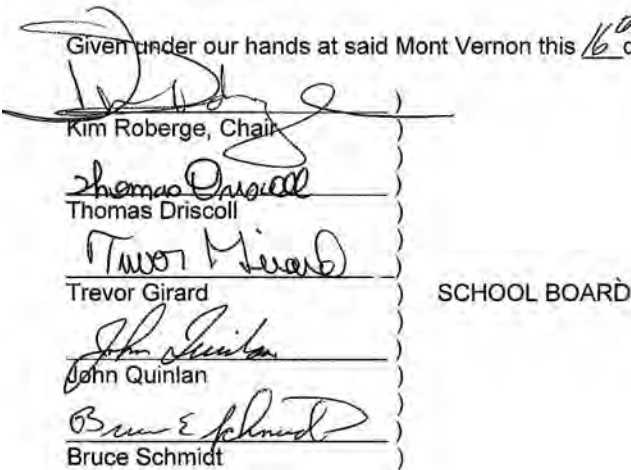 Given under our hands at said Mont Vernon this 16th d
)
Kim Roberge, Chair )
)
Thomas Driscoll )
Thomas Driscoll )
)
Trevor Girard )
Trevor Girard ) SCHOOL BOARD
)
John Quinlan )
John Quinlan )
)
Bruce E Schmidt )
Bruce Schmidt )